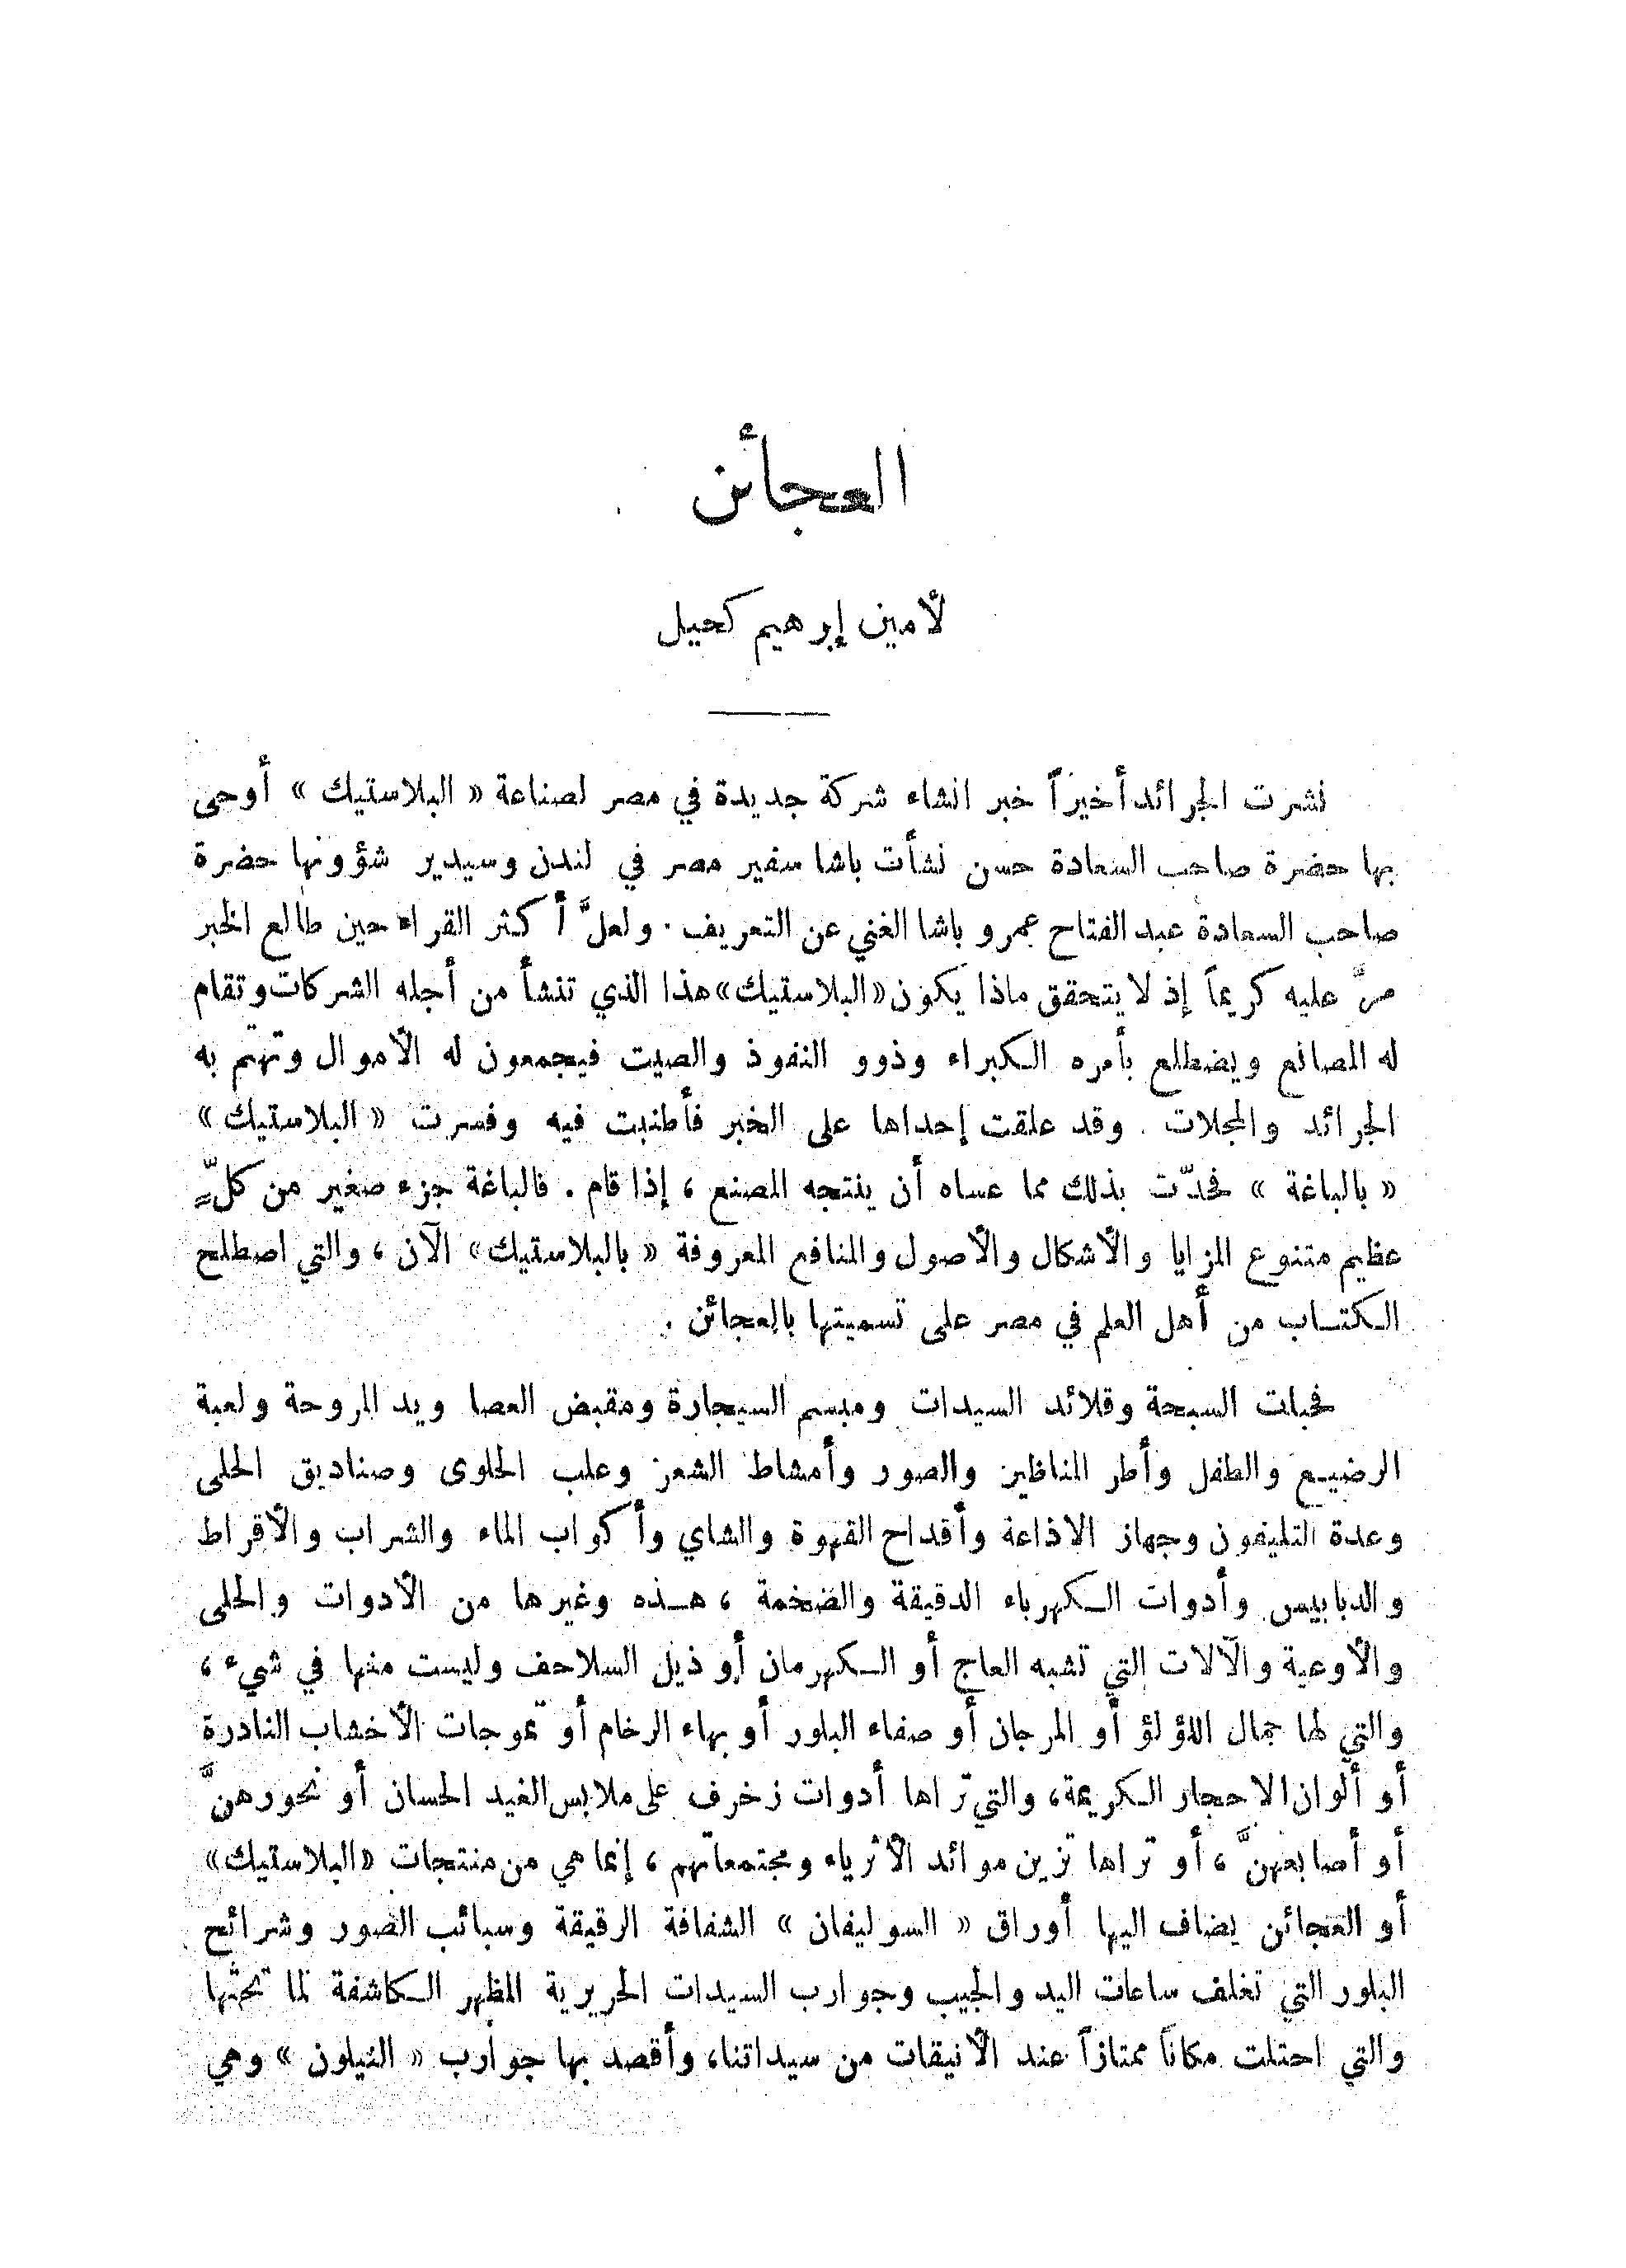 العجائن
لأمين إبرهيم كحيل
نشرت الجرائد أخيراً خبر انشاء شركة جديدة في مصر لصناعة « البلاستيك » أوحى
بها حضرة صاحب السعادة حسن نشأت باشا سفير مصر في لندن وسيدير شؤونها حضرة
صاحب السعادة عبد الفتاح عمرو باشا الغني عن التعريف . ولعلَّ أكثر القراء حين طالع الخبر
مرَّ عليه كريماً إذ لا يتحقق ماذا يكون «البلاستيك» هذا الذي تنشأ من أجله الشركات وتقام
له المصانع ويضطلع بأمره الكبراء وذوو النفوذ والصيت فيجمعون له الأموال وتهتم به
الجرائد والمجلات . وقد علقت إحداها على الخبر فأطنبت فيه وفسرت « البلاستيك »
« بالباغة » فحدّت بذلك مما عساه أن ينتجه المصنع ، إذا قام . فالباغة جزء صغير من كلٍّ
عظيم متنوع المزايا والأشكال والأصول والمنافع المعروفة « بالبلاستيك » الآن ، والتي اصطلح
الكتاب من أهل العلم في مصر على تسميتها بالعجائن .
فحبات السبحة وقلائد السيدات ومبسم السيجارة ومقبض العصا ويد المروحة ولعبة
الرضيع والطفل وأطر المناظير والصور وأمشاط الشعر وعلب الحلوى وصناديق الحلى
وعدة التليفون وجهاز الاذاعة وأقداح القهوة والشاي وأكواب الماء والشراب والأقراط
والدبابيس وأدوات الكهرباء الدقيقة والضخمة ، هذه وغيرها من الأدوات والحلى
والأوعية والآلات التي تشبه العاج أو الكهرمان أو ذيل السلاحف وليست منها في شيء ،
والتي لها جمال اللؤلؤ أو المرجان أو صفاء البلور أو بهاء الرخام أو تموجات الأخشاب النادرة
أو ألوان الاحجار الكريمة، والتي تراها أدوات زخرف على ملابس الغيد الحسان أو نحورهنَّ
أو أصابعهنَّ ، أو تراها تزين موائد الأثرياء ومجتمعاتهم ، إنما هي من منتجات «البلاستيك»
أو العجائن يضاف اليها أوراق « السوليفان » الشفافة الرقيقة وسبائب الصور وشرائح
البلور التي تغلف ساعات اليد والجيب وجوارب السيدات الحريرية المظهر الكاشفة لما تحتها
والتي احتلت مكاناً ممتازاً عند الأنيقات من سيداتنا، وأقصد بها جوارب « النيلون » وهي